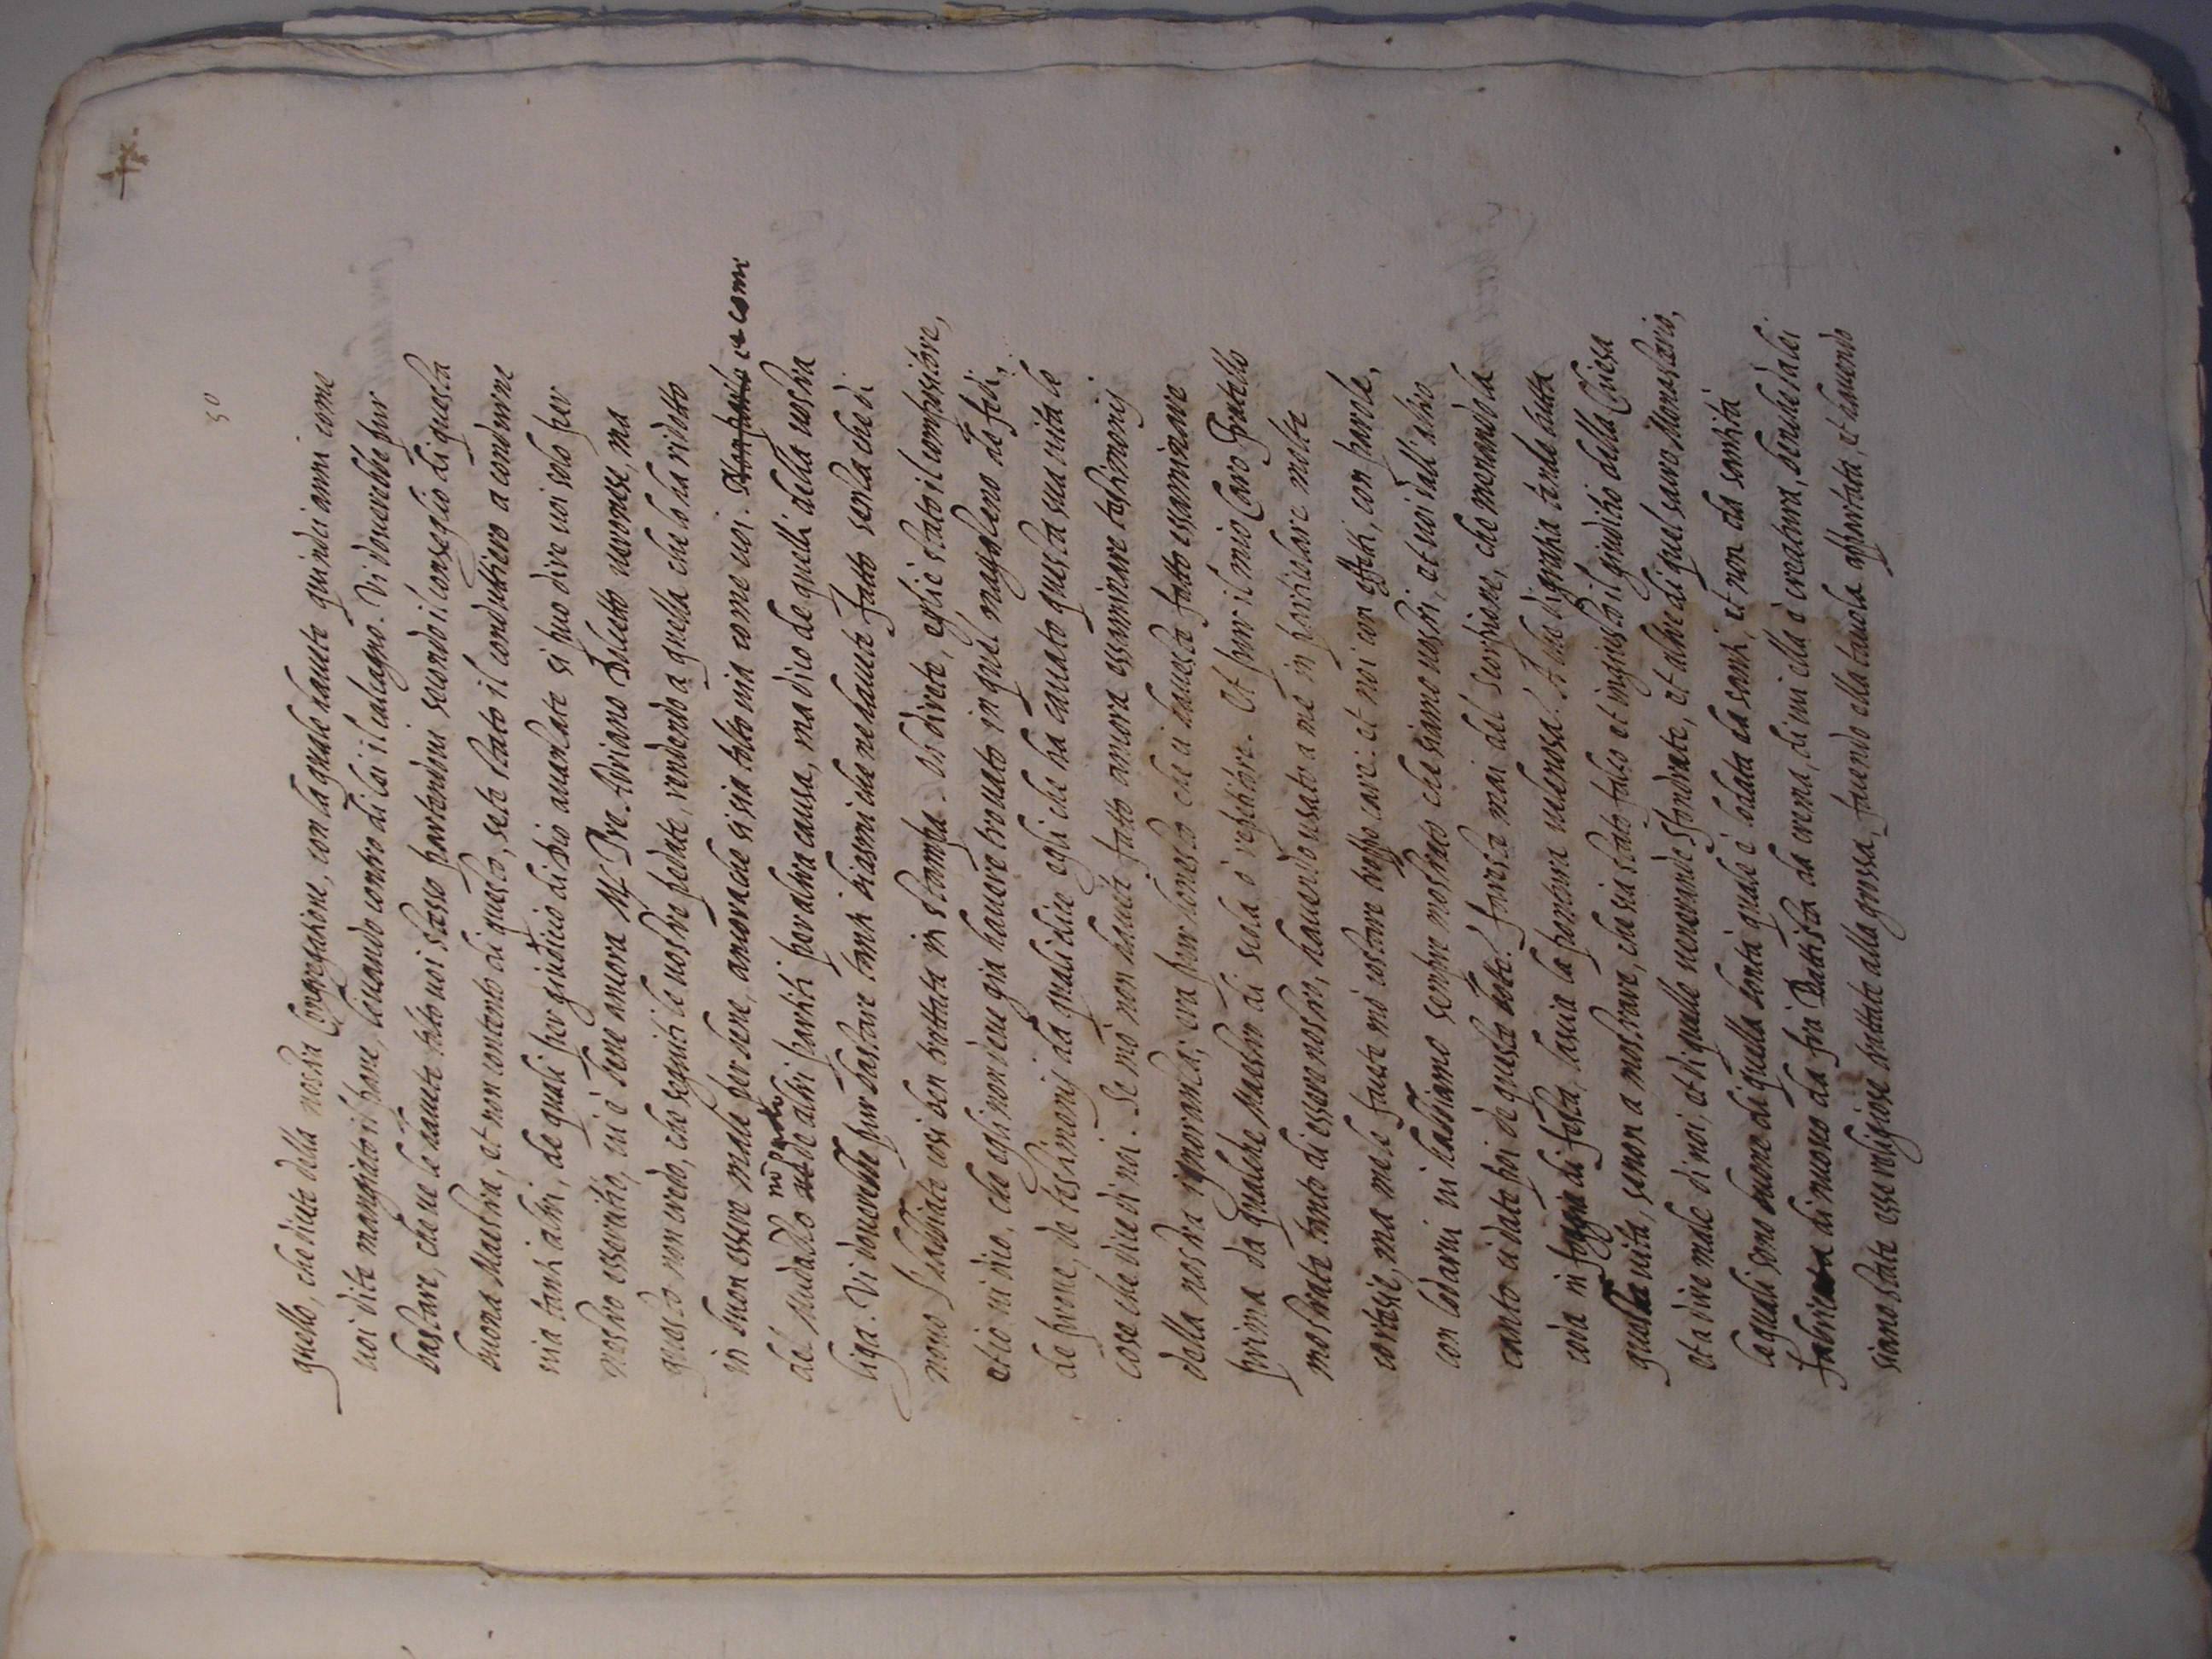 50
quello, che dite della nostra Congregatione, con la quale havete quindei anni come
voi dite mangiato il pane, levando contro di lei il calcagno. Vi doverebbe pur
bastare, che ve le havete tolto voi stesso partendovi secondo il conseglio di questa
buona Maestra, et non contento di questo, sete stato il conduttiero a condurne
via tanti altri, de quali per giudicio di Dio avanzate si puo dire voi solo per
nostro essercitio, vi è bene ancora Mr Pre. Adriano veronese, ma
questo non credo, che seguiti le vostre pedate, rendendo a quella che lo ha ridotto
in buon essere male per bene, ancorache si sia tolto via come voi. et comi
del Mudaldo no de altri partiti per altra causa, ma dico de quelli della vostra
liga. Vi doverebbe pur bastare tanti biasmi che ne havete fatto senza che di
novo l'habbiate cosi ben trattata in stampa. O direte, egli è stato il compositore,
et io vi dico, che egli non deve gia havere trovato in quel de fedi,
de prove, de testimonij da quali dice egli che ha cavato questa sua vita le
cose che dice di noi. Se mò non havete fatto ancora essaminare testimonij
della nostra ignoranza; era pur honesto che vi haveste fatto essaminare
prima da qualche Maestro di scola ò repetitore. Et pur il mio Caro Fratello
mostrate tanto di essere nostro, havendo usato a me in particolare molte
cortesie, ma me le facete mò costare troppo care. et noi con effetti, con parole,
con lodarvi vi habbiamo sempre mostrato che siamo vostri, et voi dall'altro
canto ci date poi de queste botte! faressa mai del Scorpione, che menando la
coda in foggia di festa, lascia la pontura velenosa! A che di gratia tende tutta
questa vita, senon a mostrare, che sia stato falso et ingiusto il giuditio della Chiesa
et a dire male di noi, et di quelle venerande sfondrate, et altre di quel sacro Monasterio,
le quali sono buone di quella bontà quale è lodata da santi, et non da santità
di nuovo da fra Battista da crema, di cui ella è creatura, sendosi da lei
siano state esse religiose trattate alla grossa, facendo ella tavola appartata, et havendo